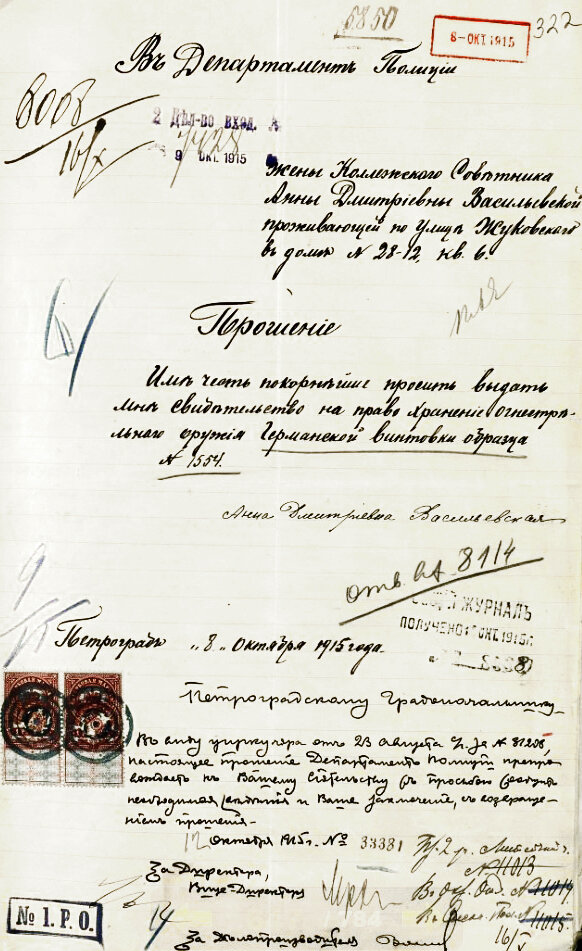 5850
8-ОКТ.1915
322
Въ Департаментъ Полиціи
6008
16/X
2 ДѢЛ-ВО ВХОД.
9 ОКТ. 1915
жены Коллежскаго Совѣтника
Анны Дмитріевны Васильевской
проживающей по улицѣ Жуковскаго
въ домѣ № 28-12, кв. 6.
Прошеніе
Имѣю честь покорнѣйше просить выдать
мнѣ свидѣтельство на право храненіе огнестрѣ-
льнаго оружія Германской винтовки образца
№ 1554.
Анна Дмитріевна Васильевская
отв. 8114
ЖУРНАЛЪ
ПОЛУЧЕНО ОКТ. 1915г.
9
Петроградъ „8„ Октября 1915 года.
Петроградскому Градоначальнику
Въ виду циркуляра отъ 23 августа с/г за № 81208,
настоящее прошеніе Департаментъ Полиціи препро-
вождаетъ къ Вашему Сіятельству съ просьбою сообщить
необходимыя свѣдѣнія и Ваше заключеніе, съ возвраще-
ніемъ прошенія.
12 Октября 1915 г. № 33381
№ 11013
За Директора,
Вице-Директоръ
14
16/X
За Дѣлопроизводителя
№ 1. P. O.